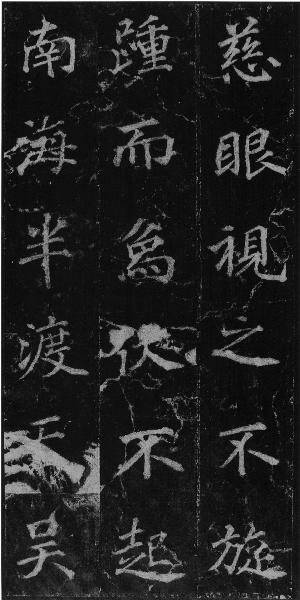 慈眼視之不旋
踵而伏不起
南海半渡吴